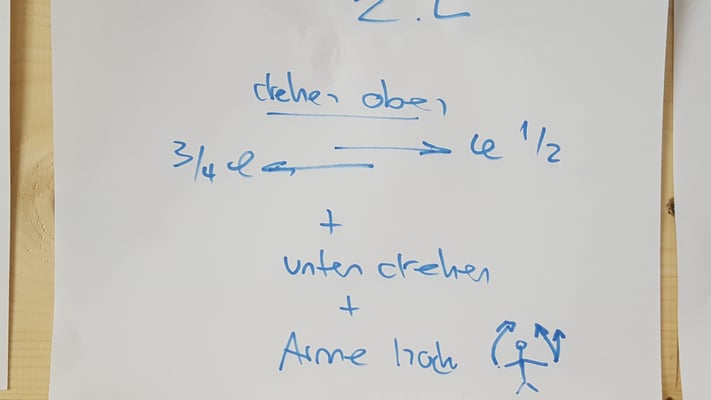 drehen oben
1/2
3/4
+
unten drehen
+
Arme hoch